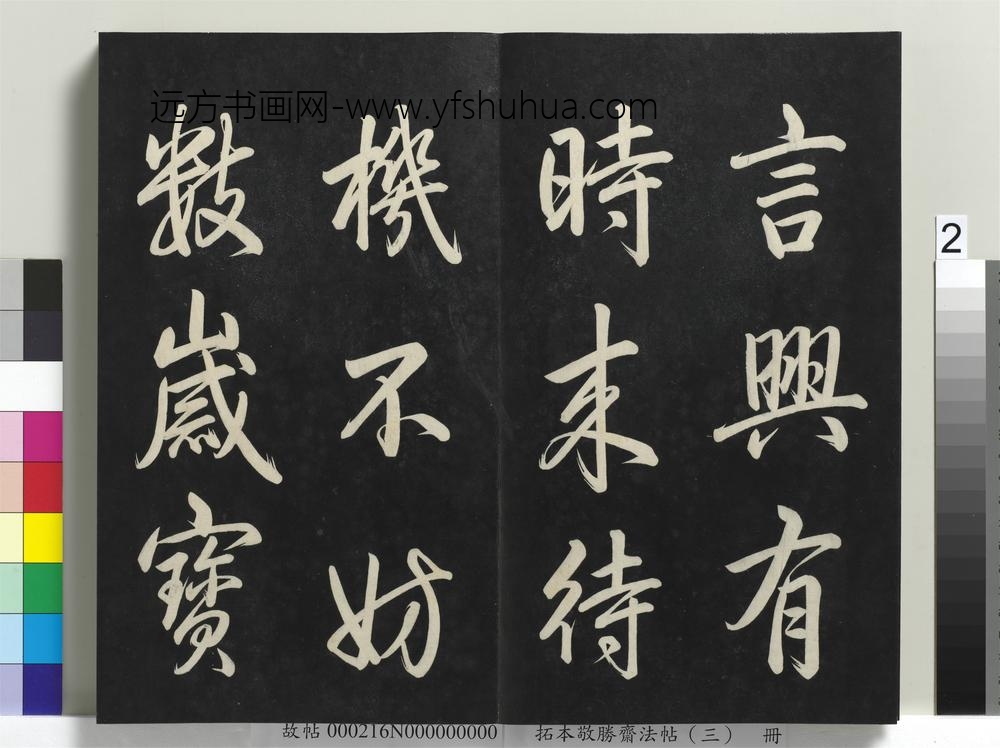 言興有
時来待
機不妨
数歲寶
远方书画网-www.yfshuhua.com
2
故帖 000216N000000000 拓本敬勝齋法帖（三） 冊